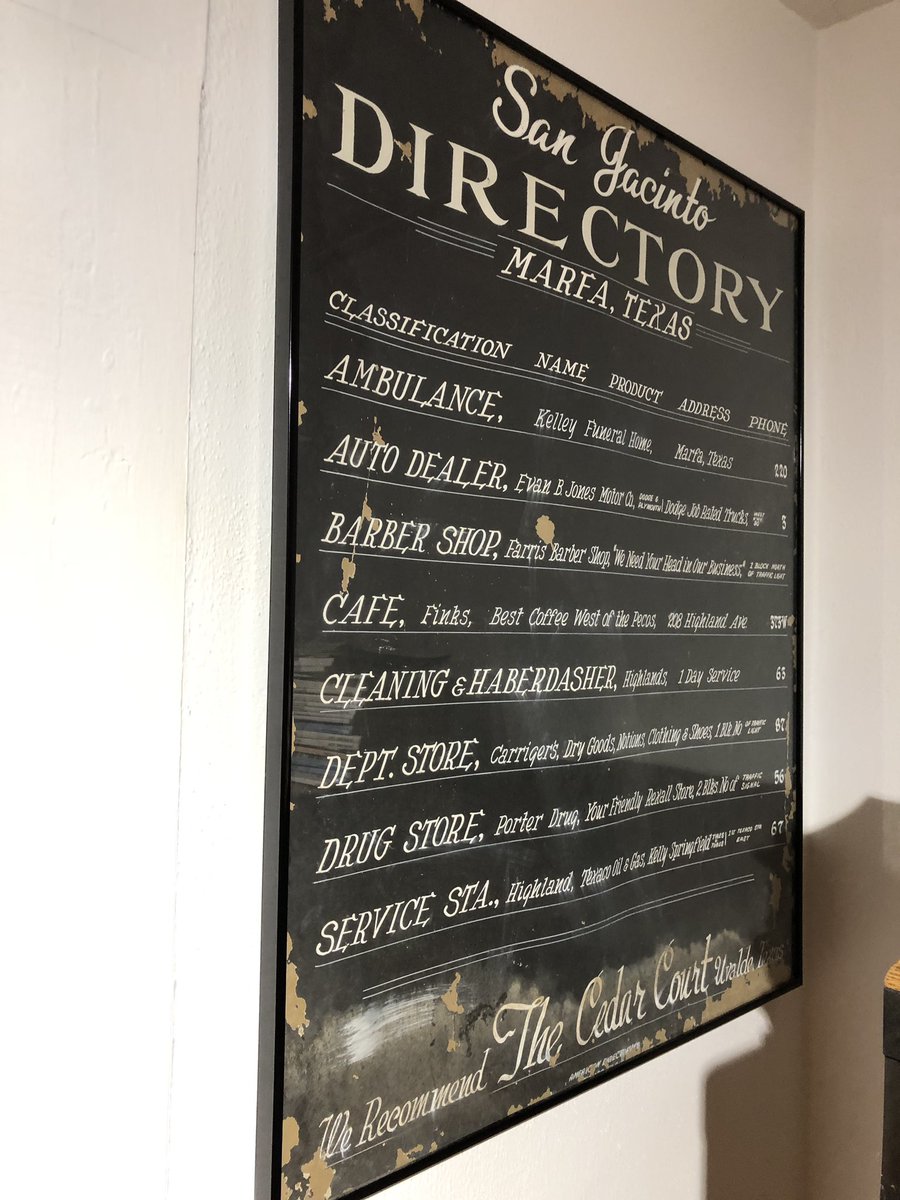 San Jacinto
DIRECTORY
MARFA, TEXAS
CLASSIFICATION NAME PRODUCT ADDRESS PHONE
AMBULANCE, Kelley Funeral Home, Marfa, Texas 220
AUTO DEALER, Evan B. Jones Motor Co., DODGE & PLYMOUTH Dodge Job Rated Trucks, 3
BARBER SHOP, Farris Barber Shop, "We Need Your Head in Our Business," 1 BLOCK NORTH OF TRAFFIC LIGHT
CAFE, Finks, Best Coffee West of the Pecos, 208 Highland Ave
CLEANING & HABERDASHER, Highlands, 1 Day Service 63
DEPT. STORE, Carriger's, Dry Goods, Notions, Clothing & Shoes, 1 Blk No OF TRAFFIC LIGHT 67
DRUG STORE, Porter Drug, Your Friendly Rexall Store, 2 Blks No of TRAFFIC SIGNAL 56
SERVICE STA., Highland, Texaco Oil & Gas, Kelly Springfield 1ST TEXACO STA EAST 67
We Recommend The Cedar Court Uvalde, Texas